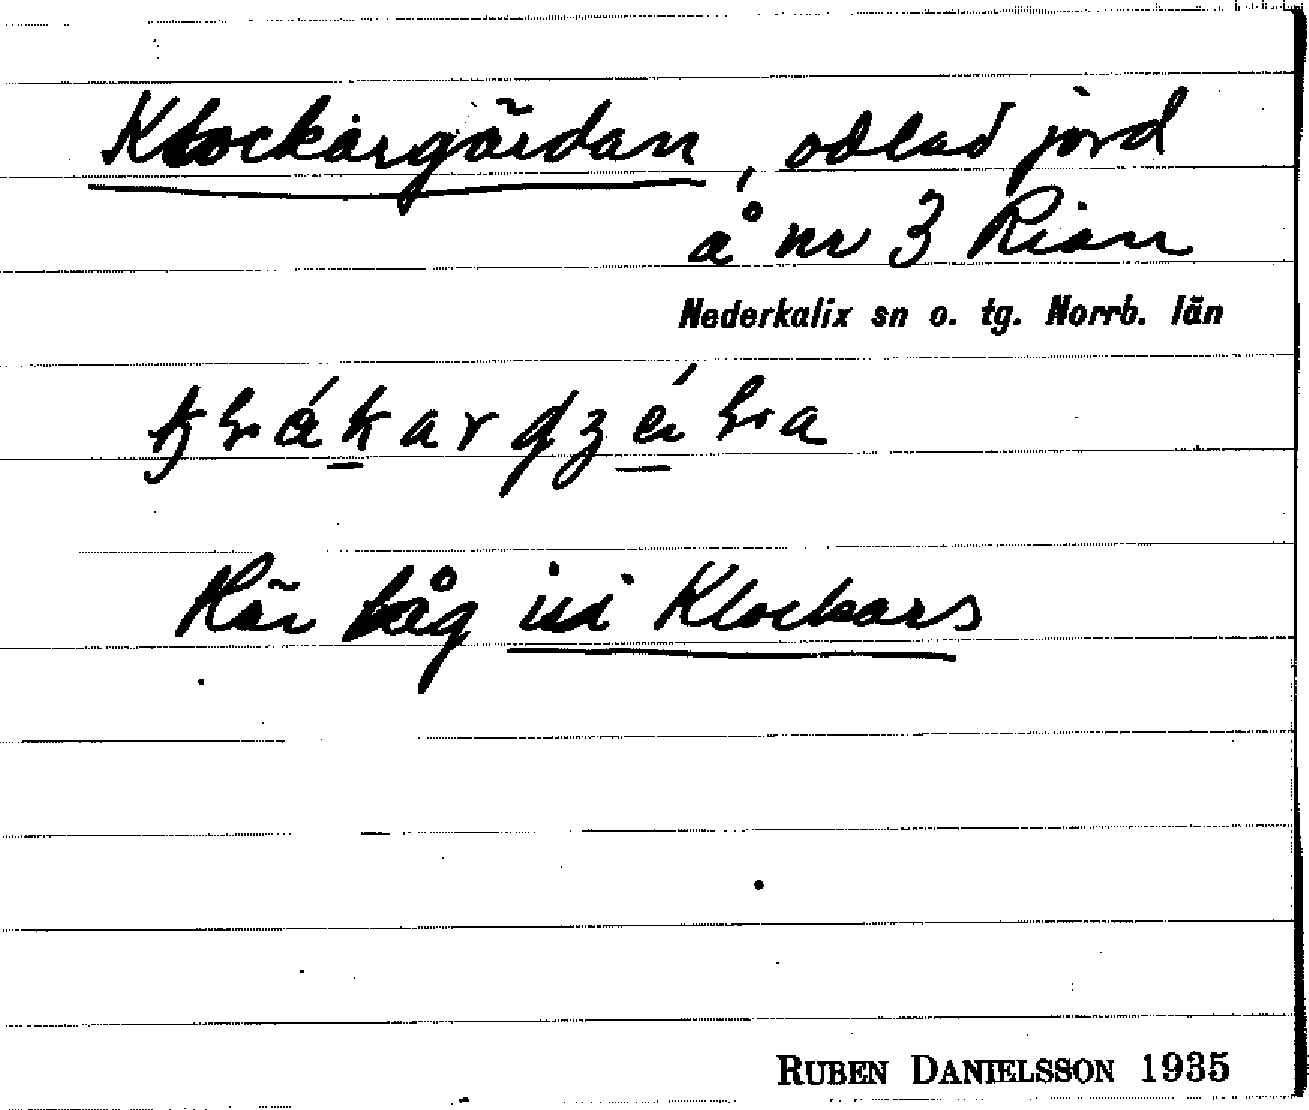 Klockargärdan, odlad jord
å nr 3 Rian
Nederkalix sn o. tg. Norrb. län
Här låg isi Klockars
RUBEN DANIELSSON 1935